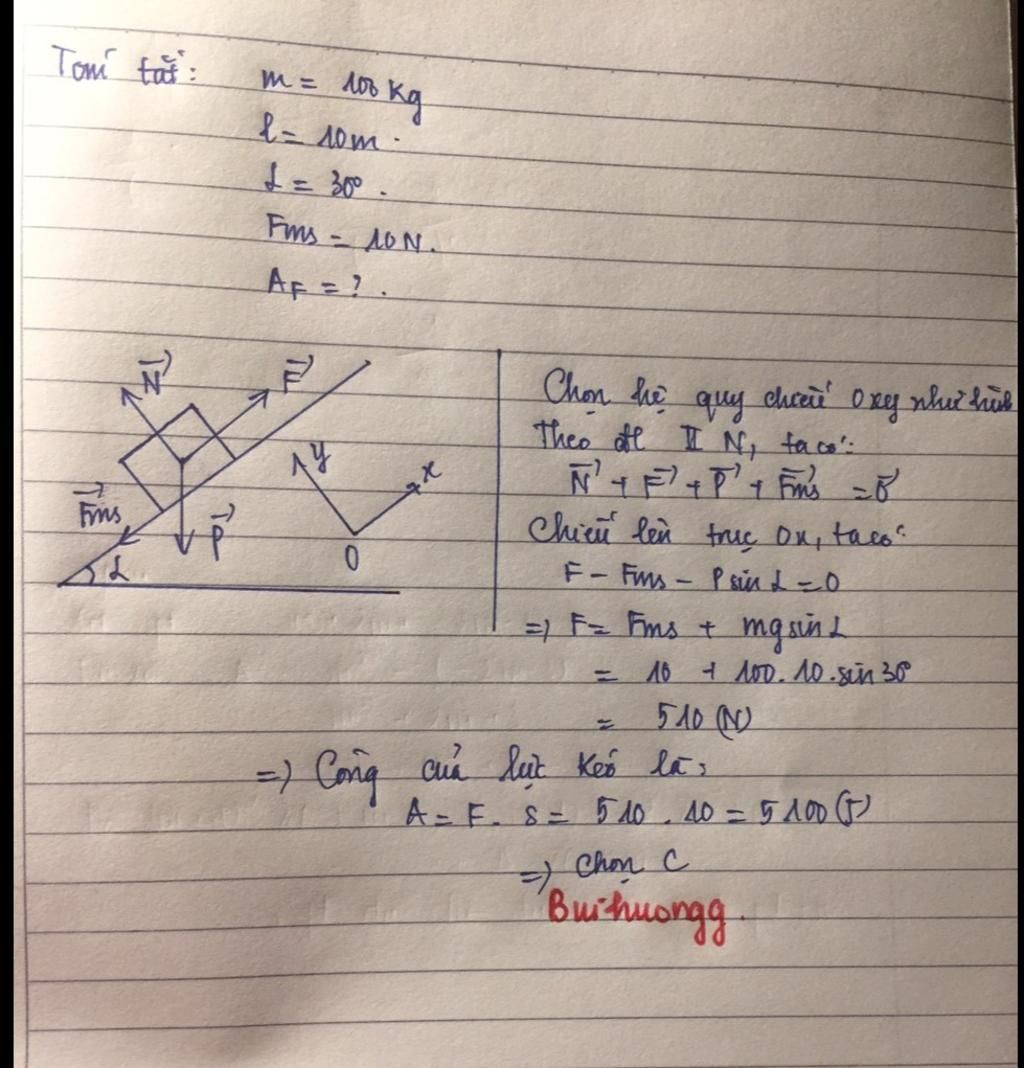 Tóm tắt: m = 100 kg
l = 10m.
α = 30°.
Fms = 10N.
AF = ?.
N→ F→
y x
Fms→ P→ O
α
Chọn hệ quy chiếu Oxy như hình
Theo đl II N, ta có:
N→ + F→ + P→ + Fms→ = 0→
Chiếu lên trục Ox, ta có:
F - Fms - P sin α = 0
=> F = Fms + mg sin α
= 10 + 100.10.sin 30°
= 510 (N)
=> Công của lực kéo là:
A = F. s = 510 . 10 = 5100 (J)
=> Chọn C
Buihuongg.